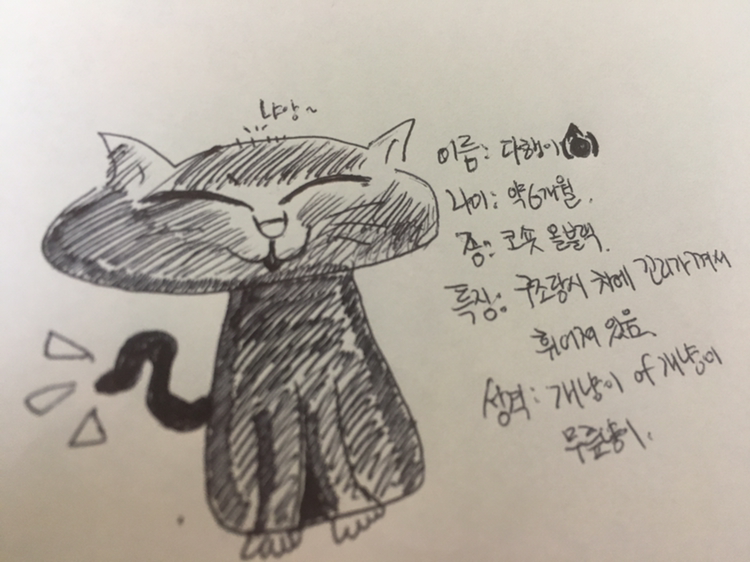 냐앙~
이름: 다행이
나이: 약6개월.
종: 코숏 올블랙.
특징: 구조당시 차에 꼬리가 껴서
휘어져 있음.
성격: 개냥이 of 개냥이
무릎냥이.